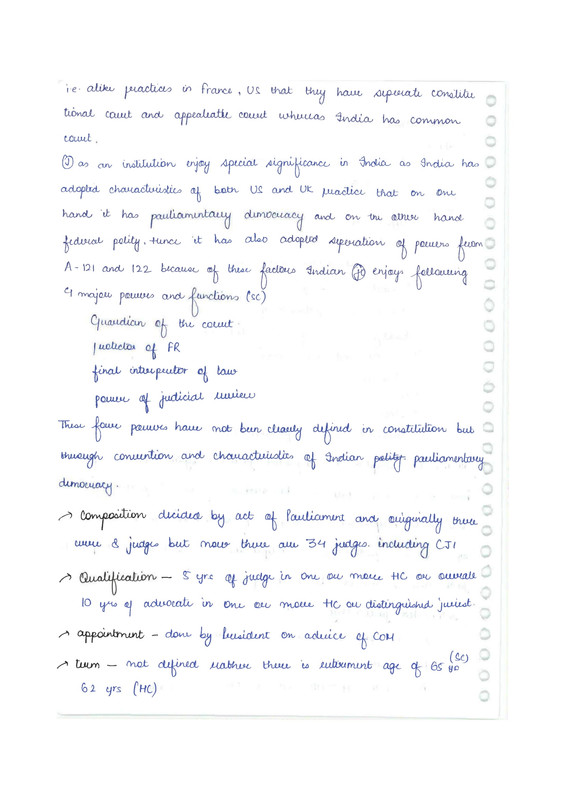 i.e. alike practices in France, US that they have seperate constitu
tional court and appealable court whereas India has common
court.
Ⓙ as an institution enjoy special significance in India as India has
adopted characteristics of both US and UK practice that on one
hand it has pauliamentary democracy and on the other hand
federal polity. Hence it has also adopted seperation of powers from
A-121 and 122 because of these factors Indian enjoys following
4 major powers and functions (SC)
Guardian of the court
protector of FR
final interpretor of law
power of judicial review
These four powers have not been clearly defined in constitution but
through convention and characteristics of Indian polity pauliamentary
democracy.
→ Composition decided by act of Pauliament and originally there
were 8 judges but now there are 34 judges including CJI
→ Qualification - 5 yrs of judge in one or more HC or overate
10 yrs of advocate in one or more HC or distinguished jurist.
→ appointment - done by President on advice of COM
→ term - not defined rather there is retirement age of 65 (SC)
62 yrs (HC)